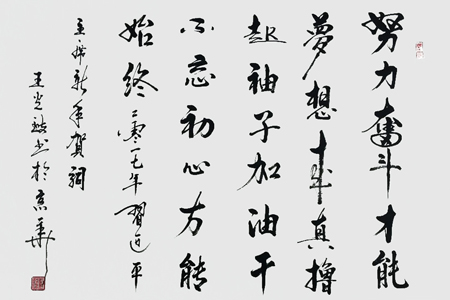 努力奋斗才能
梦想成真撸
起袖子加油干
不忘初心方能
始终二零一七年习近平
主席新年贺词
王光
书于京华